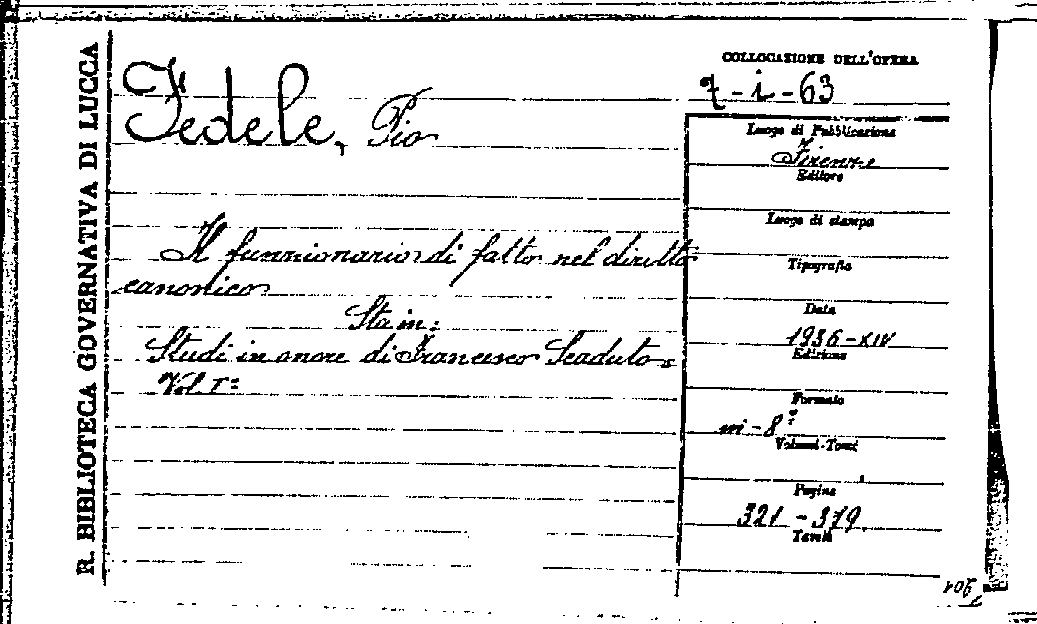 R. BIBLIOTECA GOVERNATIVA DI LUCCA
Fedele, Pio
Il funzionario di fatto nel diritto
canonico
Sta in:
Studi in onore di Francesco Scaduto =
Vol. I=
COLLOCAZIONE DELL'OPERA
7-i-63
Luogo di Pubblicazione
Firenze
Editore
Luogo di stampa
Tipografia
Data
1936-XIV
Edizione
Formato
in-8º
Volumi-Tomi
Pagine
321-379
Tavole